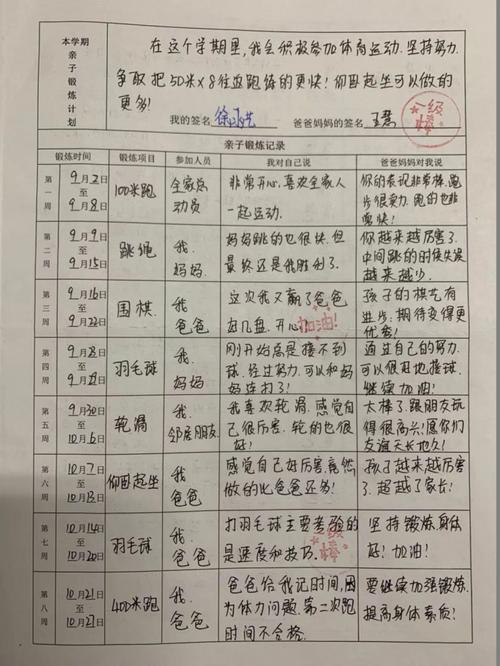 本学期亲子锻炼计划
在这个学期里,我会积极参加体育运动.坚持努力.
争取把50米×8往返跑练的更快!仰卧起坐可以做的
更多!
我的签名
爸爸妈妈的签名
一级棒
亲子锻炼记录
锻炼时间 锻炼项目 参加人员 我对自己说 爸爸妈妈对我说
第一周 9月2日至9月8日
100米跑
全家总
动员
非常开心,喜欢全家人
一起运动.
你的表现非常棒,跑
步很卖力.跑的也非
常快!
第二周 9月9日至9月15日
跳绳
我.
妈妈.
妈妈跳的也很快.但
最终还是我胜利了.
你越来越厉害了.
中间跳的时候失误
越来越少.
第三周 9月16日至9月22日
围棋
我
爸爸
这次我又赢了爸爸
好几盘.开心!
加油!
孩子的棋艺有
进步,期待变得更
优秀!
第四周 9月23日至9月29日
羽毛球
我.
妈妈
刚开始总是接不到
球.经过努力.可以和妈
妈连打了!
通过自己的努力.
可以很好地接球.
继续加油!
第五周 9月30日至10月6日
轮滑
我.
邻居朋友
我喜欢轮滑.感觉自
己很厉害.轮的也很
好!
太棒了.跟朋友玩
得很高兴!愿你们
友谊天长地久!
第六周 10月7日至10月13日
仰卧起坐
我.
爸爸
感觉自己好厉害竟然
做的比爸爸还多!
孩子越来越厉害
了.超越了家长!
第七周 10月14日至10月20日
羽毛球
我.
爸爸
打羽毛球主要考验的
是速度和技巧.
坚持锻炼.身体
好!加油!
第八周 10月21日至10月27日
400米跑
我.
爸爸
爸爸给我记时间,因
为体力问题.第二次跑
时间不合格.
要继续加强锻炼,
提高身体素质!